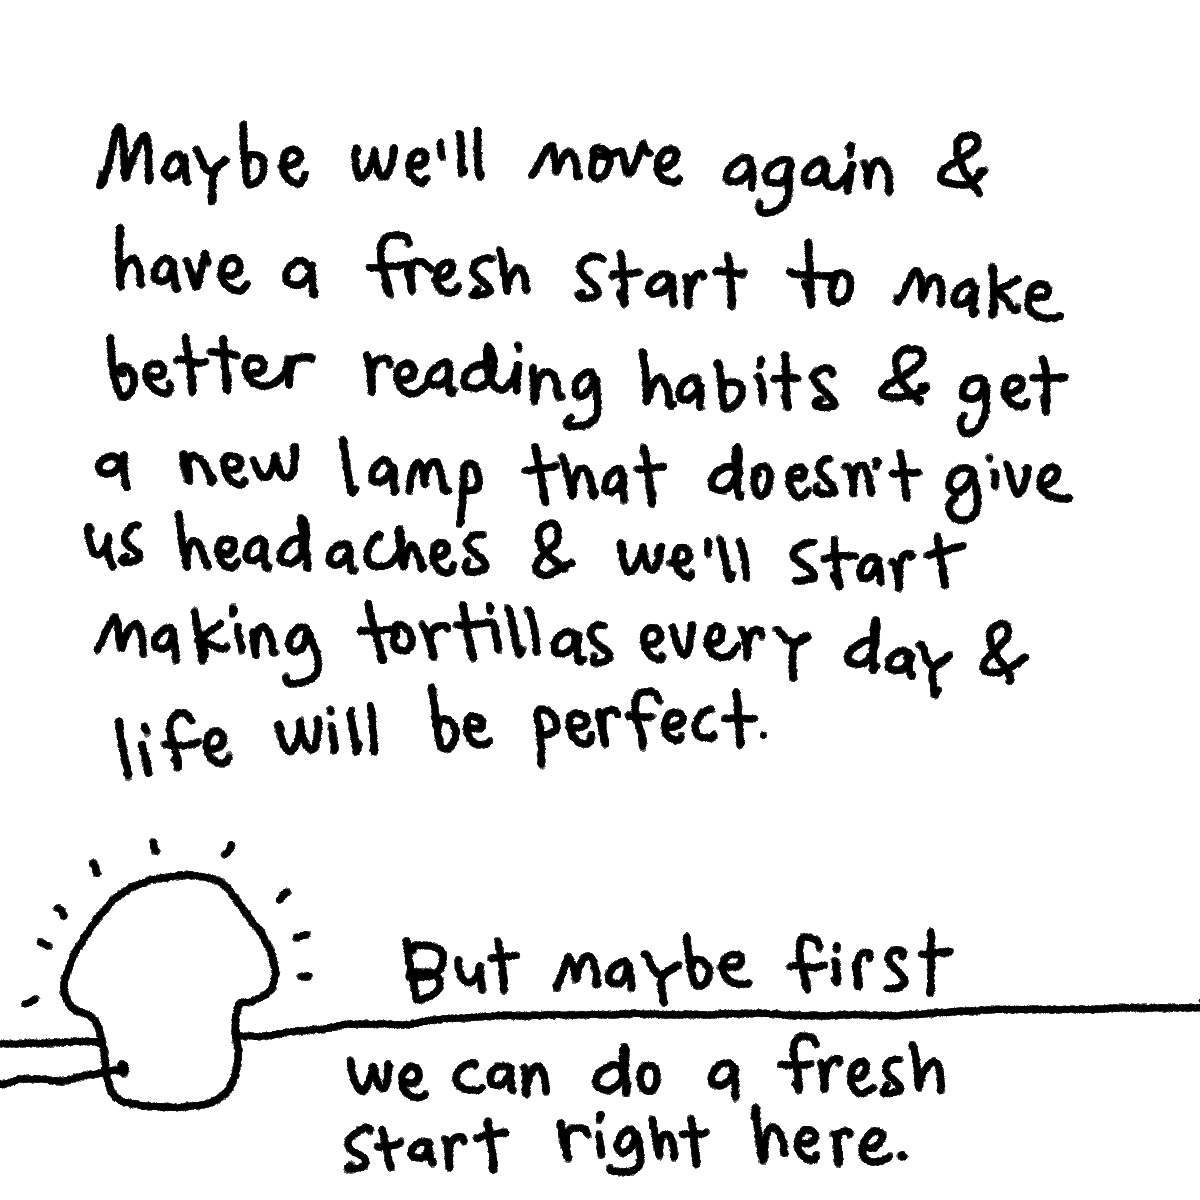 Maybe we'll move again &
have a fresh start to make
better reading habits & get
a new lamp that doesn't give
us headaches & we'll start
making tortillas every day &
life will be perfect.
But maybe first
we can do a fresh
start right here.